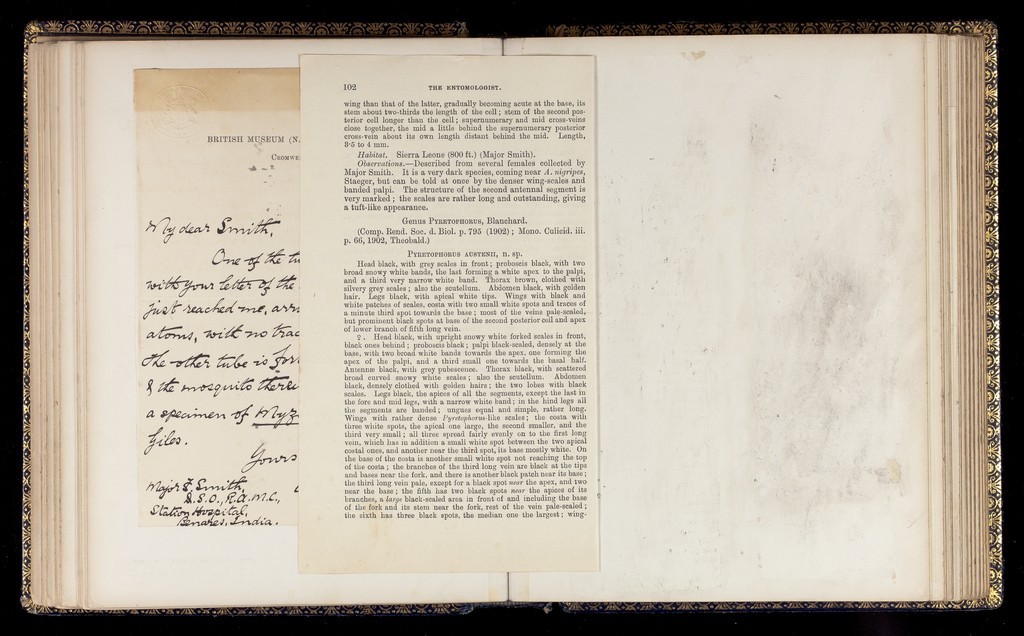 BRITISH MUSEUM (N.
CROMWE
My dear Smith,
One of the tu
with your letter of the
just reached me, arri
atoms, with no trac
the other tube is for
& the mosquito therei
a specimen of Myz
Giles.
Yours
Major F. Smith,
D.S.O., R.A.M.C.,
Station Hospital,
Benares, India.
102 THE ENTOMOLOGIST.
wing than that of the latter, gradually becoming acute at the base, its
stem about two-thirds the length of the cell; stem of the second pos-
terior cell longer than the cell; supernumerary and mid cross-veins
close together, the mid a little behind the supernumerary posterior
cross-vein about its own length distant behind the mid. Length,
3·5 to 4 mm.
Habitat. Sierra Leone (800 ft.) (Major Smith).
Observations.—Described from several females collected by
Major Smith. It is a very dark species, coming near A. nigripes,
Staeger, but can be told at once by the denser wing-scales and
banded palpi. The structure of the second antennal segment is
very marked; the scales are rather long and outstanding, giving
a tuft-like appearance.
Genus PYRETOPHORUS, Blanchard.
(Comp. Rend. Soc. d. Biol. p. 795 (1902); Mono. Culicid. iii.
p. 66, 1902, Theobald.)
PYRETOPHORUS AUSTENII, n. sp.
Head black, with grey scales in front; proboscis black, with two
broad snowy white bands, the last forming a white apex to the palpi,
and a third very narrow white band. Thorax brown, clothed with
silvery grey scales; also the scutellum. Abdomen black, with golden
hair. Legs black, with apical white tips. Wings with black and
white patches of scales, costa with two small white spots and traces of
a minute third spot towards the base; most of the veins pale-scaled,
but prominent black spots at base of the second posterior cell and apex
of lower branch of fifth long vein.
♀. Head black, with upright snowy white forked scales in front,
black ones behind; proboscis black; palpi black-scaled, densely at the
base, with two broad white bands towards the apex, one forming the
apex of the palpi, and a third small one towards the basal half.
Antennæ black, with grey pubescence. Thorax black, with scattered
broad curved snowy white scales; also the scutellum. Abdomen
black, densely clothed with golden hairs; the two lobes with black
scales. Legs black, the apices of all the segments, except the last in
the fore and mid legs, with a narrow white band; in the hind legs all
the segments are banded; ungues equal and simple, rather long.
Wings with rather dense Pyretophorus-like scales; the costa with
three white spots, the apical one large, the second smaller, and the
third very small; all three spread fairly evenly on to the first long
vein, which has in addition a small white spot between the two apical
costal ones, and another near the third spot, its base mostly white. On
the base of the costa is another small white spot not reaching the top
of the costa; the branches of the third long vein are black at the tips
and bases near the fork, and there is another black patch near its base;
the third long vein pale, except for a black spot near the apex, and two
near the base; the fifth has two black spots near the apices of its
branches, a large black-scaled area in front of and including the base
of the fork and its stem near the fork, rest of the vein pale-scaled;
the sixth has three black spots, the median one the largest; wing-